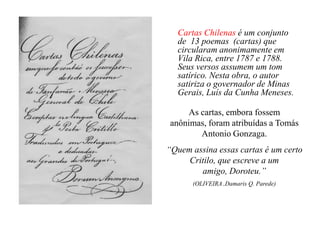 Cartas Chilenas
em que o poeta Critillo
conta a Dorotheo
os factos
de Fanfarrão Minezio
General de Chile
Escriptas na lingua Castelhana
pelo Poeta Critillo
Traduzidas em Portuguez
e dedicadas
aos Grandes de Portugal
Por um Anonymo
Cartas Chilenas é um conjunto
de 13 poemas (cartas) que
circularam anonimamente em
Vila Rica, entre 1787 e 1788.
Seus versos assumem um tom
satírico. Nesta obra, o autor
satiriza o governador de Minas
Gerais, Luis da Cunha Meneses.
As cartas, embora fossem
anônimas, foram atribuídas a Tomás
Antonio Gonzaga.
“Quem assina essas cartas é um certo
Critilo, que escreve a um
amigo, Doroteu.”
(OLIVEIRA ,Damaris Q. Parede)